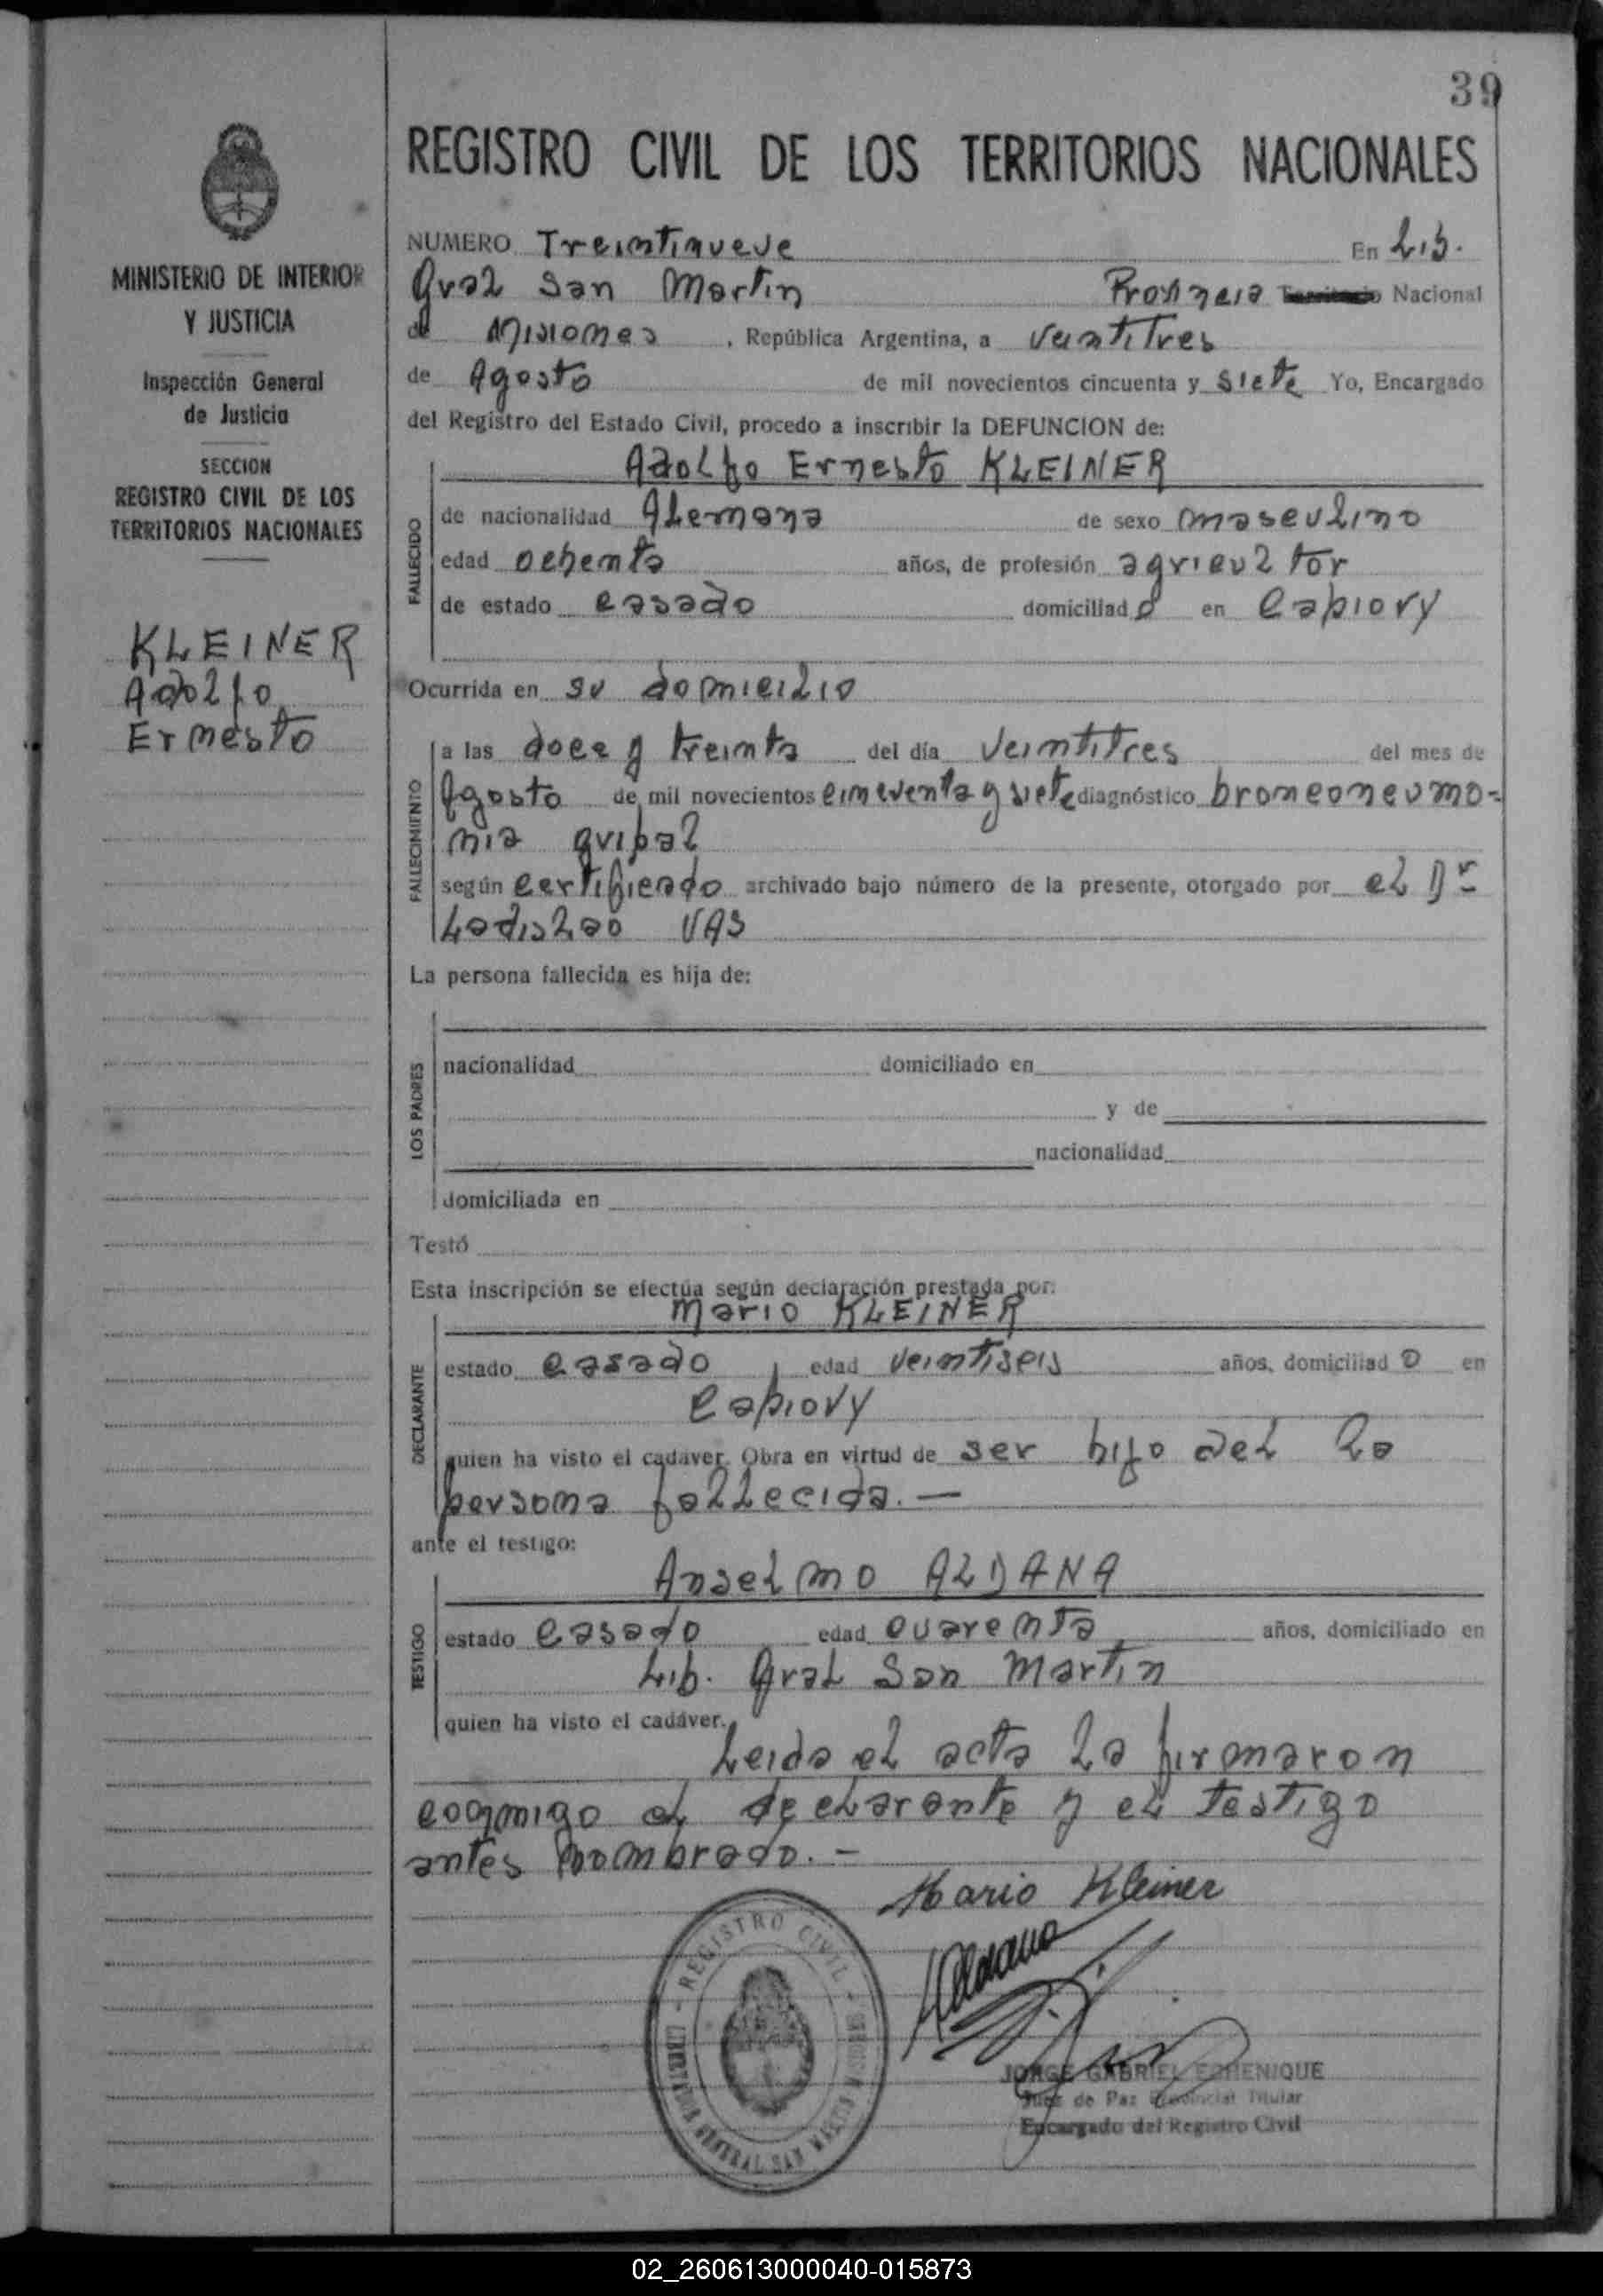 39
REGISTRO CIVIL DE LOS TERRITORIOS NACIONALES
MINISTERIO DE INTERIOR
Y JUSTICIA
Inspección General
de Justicia
SECCION
REGISTRO CIVIL DE LOS
TERRITORIOS NACIONALES
KLEINER
Adolfo
Ernesto
NUMERO Treintinueve En Lib.
Gral San Martin Provincia Territorio Nacional
de Misiones, República Argentina, a veintitres
de Agosto de mil novecientos cincuenta y siete Yo, Encargado
del Registro del Estado Civil, procedo a inscribir la DEFUNCION de:
FALLECIDO
Adolfo Ernesto KLEINER
de nacionalidad Alemana de sexo masculino
edad ochenta años, de profesión agricultor
de estado casado domiciliado en Capiovy
Ocurrida en su domicilio
FALLECIMIENTO
a las doce y treinta del día veintitres del mes de
Agosto de mil novecientos cincuenta y siete diagnóstico bronconeumo-
nia gripal
según certificado archivado bajo número de la presente, otorgado por el Dr
Ladislao VAS
La persona fallecida es hija de:
LOS PADRES
nacionalidad domiciliado en
y de
nacionalidad
domiciliada en
Testó
Esta inscripción se efectúa según declaración prestada por:
DECLARANTE
Mario KLEINER
estado casado edad veintiseis años, domiciliado en
Capiovy
quien ha visto el cadáver. Obra en virtud de ser hijo del la
persona fallecida.—
ante el testigo:
TESTIGO
Anselmo ALDANA
estado casado edad cuarenta años, domiciliado en
Lib. Gral San Martin
quien ha visto el cadáver.
Leida el acta la firmaron
conmigo el declarante y el testigo
antes nombrado.-
Mario Kleiner
Aldana
REGISTRO CIVIL
LIBERTADOR GENERAL SAN MARTIN
JORGE GABRIEL ECHENIQUE
Juez de Paz Provincial Titular
Encargado del Registro Civil
02_260613000040-015873